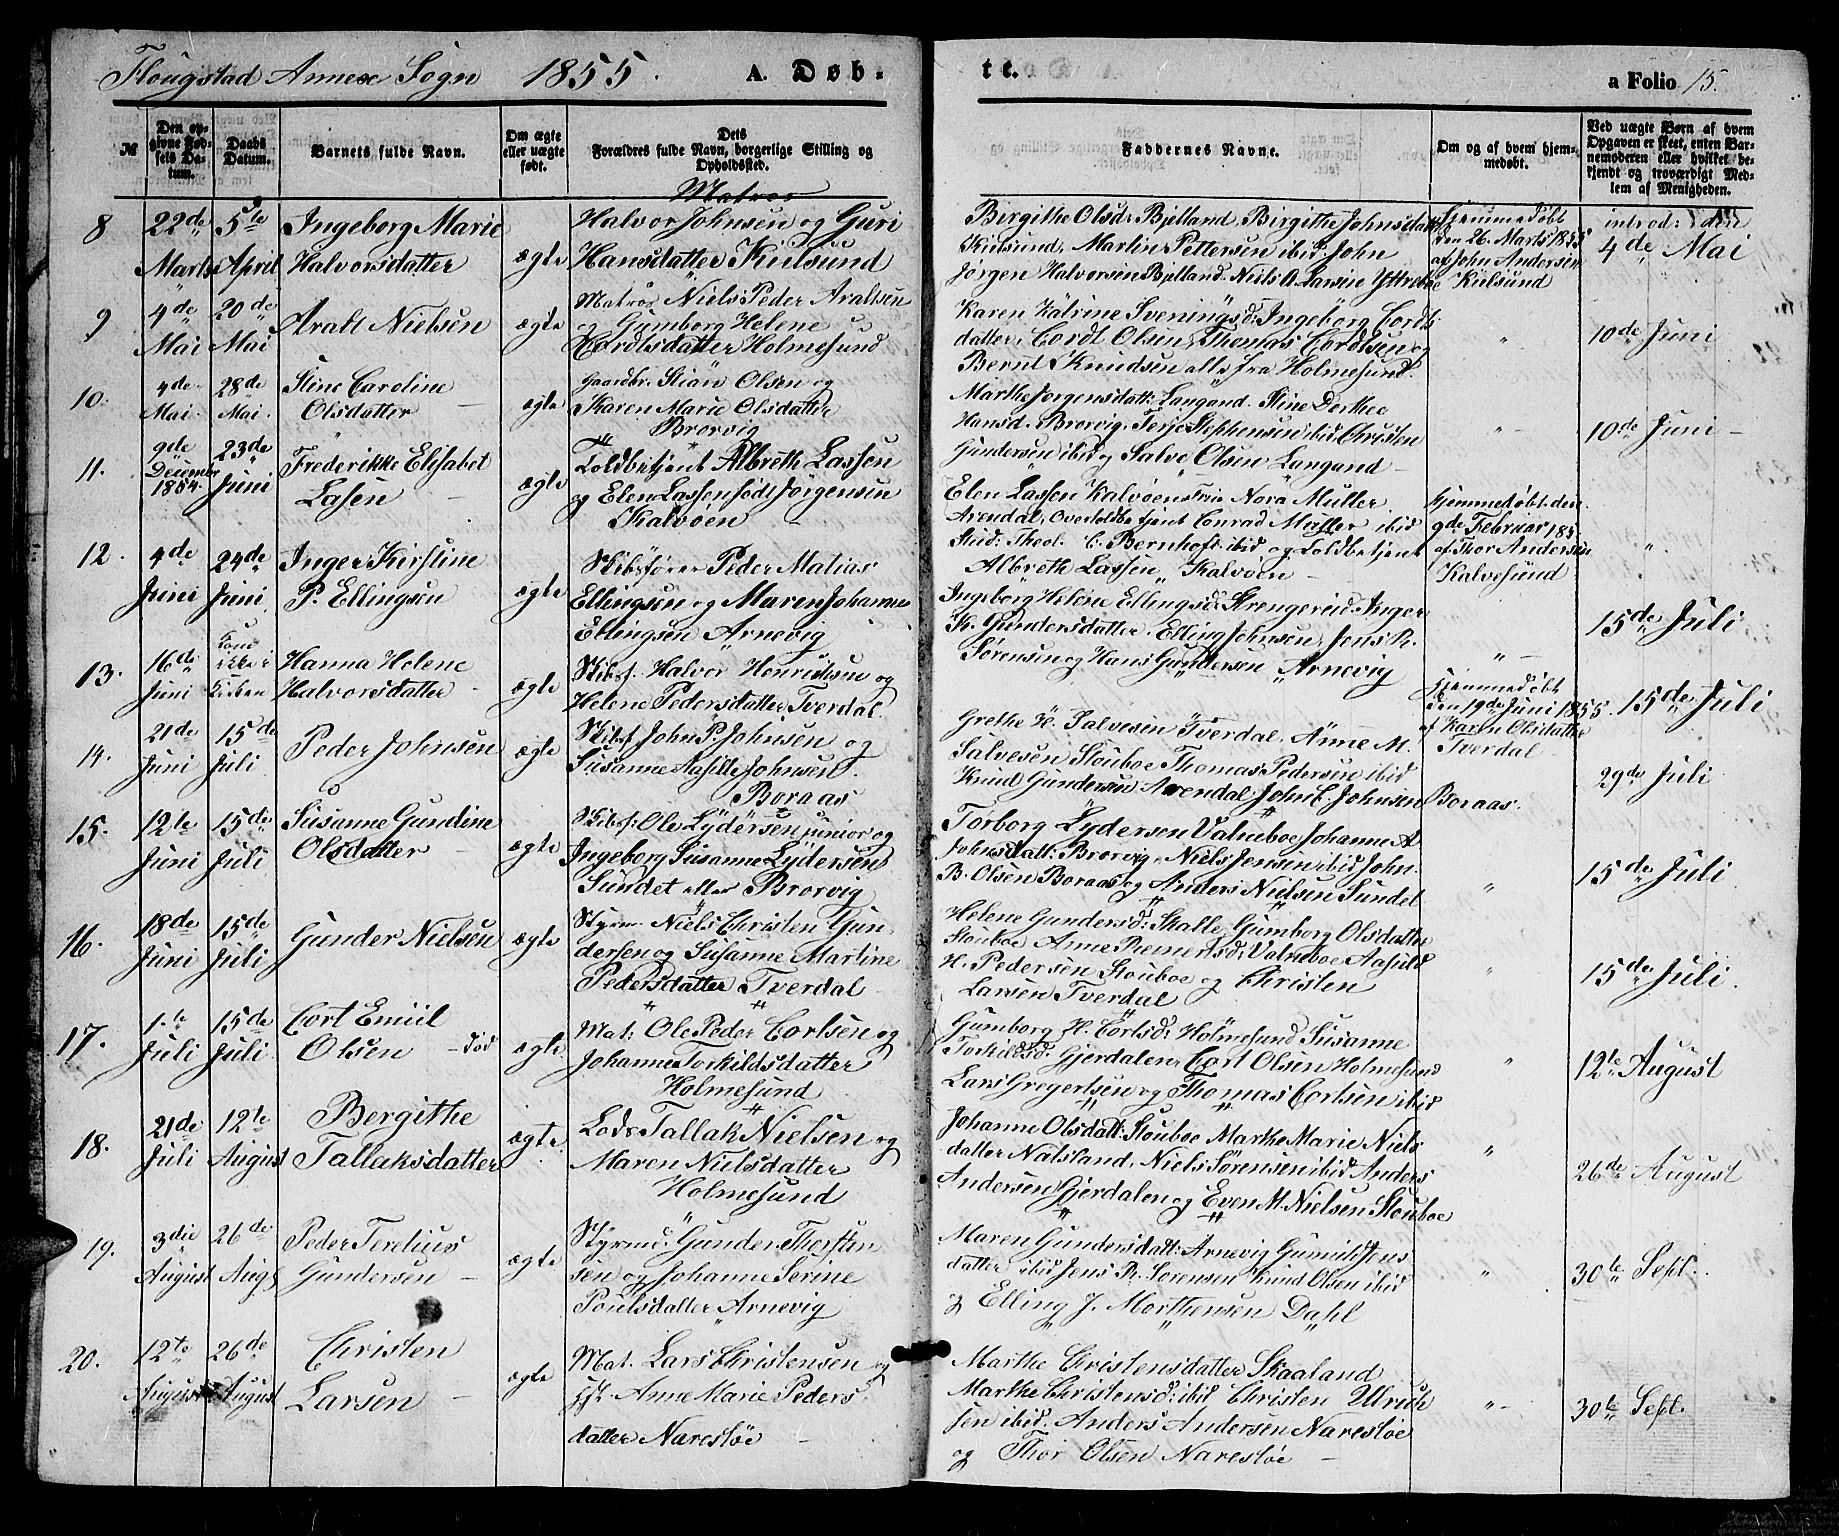 Flougstad Annex Sogn 1855. A. Døb-
te.
a Folio 15.
№
Den opgivne Fødsels Datum.
Daabs Datum.
Barnets fulde Navn.
Om ægte eller uægte født.
Dets Forældres fulde Navn, borgerlige Stilling og Opholdssted.
Faddernes Navne.
Om og af hvem hjemmedøbt.
Ved uægte Børn af hvem Opgaven er skeet, enten Barnemoderen eller hvilket bekjendt og troværdigt Medlem af Menigheden.
8
22de
Marts
5te
April
Ingeborg Marie
Halvorsdatter
ægte
Matros
Halvor Johnsen og Guri
Hansdatter Kiilsund
Birgithe Olsd: Bjelland, Birgithe Johnsdatt
Kiilsund, Martin Pettersen ibid John
Jörgen Halvorsen Bjelland, Niels A. Larsen Yttreboe
Hjemmedøbt
den 26. Marts 1855
af John Andersen
Kiilsund
introd: den
4de Mai
9
4de
Mai
20de
Mai
Aralt Nielsen
ægte
Matros Niels Peder Araltsen
og Gumborg Helene
Cordtsdatter Holmesund
Karen Katrine Sveningsd: Ingeborg Cordts
datter, Cordt Olsen, Thomas Cordtsen og
Bernt Knudsen alle fra Holmesund.
"
10de Juni
10.
4de
Mai.
28de
Mai.
Stine Caroline
Olsdatter
ægte
Gaardbr. Stian Olsen og
Karen Marie Olsdatter
Brorvig
Marthe Jorgensdatt: Langand. Stine Dorthee
Hansd. Brorvig, Terje Stephensen ibid Christen
Gundersen ibid og Salve Olsen Langand
"
10de Juni
11.
9de
Decembr
1854.
23de
Juni
Frederikke Elisabet
Lasen
ægte
Toldbetjent Albreth Lassen
og Elen Lassen født Jörgensen
Kalvöen
Elen Lassen Kalvöen, Frue Nora Müller
Arendal, Overtoldbetjent Conrad Møller ibid
Stud: Theol. C. Bernhoft ibid og Toldbetjent
Albreth Lassen Kalvöen
Hjemmedøbt den
9de Februar 185
af Thor Andersen
Kalvesund
"
12.
4de
Juni
24de
Juni
Inger Kirstine
P. Ellingsen
ægte
Skibsfører Peder Matias
Ellingsen og Maren Johanne
Ellingsen Arnevig
Ingeborg Helene Ellingsd: Strengereid. Inger
K. Gundersdatter. Elling Johnsen, Jens P.
Sörensen og Hans Gundersen Arnevig
"
15de Juli
13.
16de
Juni
Hanna Helene
Halvorsdatter
ægte
Skibsf. Halvor Henriksen og
Helene Pedersdatter Tverdal.
Grethe H. Salvesen Tverdal, Anne M.
Salvesen Stouboe Thomas Pedersen ibid
Hjemmedøbt
den 19de Juni 1855
af Karen Olsdatter
Tverdal
15de Juli
14.
21de
Juni
15de
Juli
Peder Johnsen
ægte
Skibsf John P. Johnsen og
Susanne Aasille Johnsen.
Boraas
Knud Gundersen Arendal John C. Johnsen Boraas.
29de Juli
15.
12te
Juni
15de
Juli
Susanne Gundine
Olsdatter
ægte
Skibsf. Ole Lydersen junior og
Ingeborg Susanne Lydersen
Sundet eller Brorvig
Torborg Lydersen Valneboe Johanne A
Johnsdatt: Brorvig, Niels Jensen ibid John
B. Olsen Boraas og Anders Nielsen Sundet
"
15de Juli
16.
18de
Juni
15de
Juli
Gunder Nielsen
ægte
Styrm. Niels Christen Gun
dersen og Susanne Martine
Pedersdatter Tverdal
Helene Gundersd: Skalle, Gumborg Olsdatter
Stouboe Anne Reinertsd: Valneboe Aasuld
H. Pedersen Stouboe og Christen
Larsen Tverdal
"
15de Juli
17.
1te
Juli
15de
Juli
Cort Emiil
Olsen - død
ægte
Mat: Ole Peder Cortsen og
Johanne Torkildsdatter
Holmesund
Gumborg H. Cortsd: Holmesund Susanne
Torkildsd: Gjerdalen Cort Olsen Holmesund
Lars Gregertsen og Thomas Cortsen ibid
"
12te August
18.
21de
Juli
12te
August
Bergithe
Tallaksdatter
ægte
Lods Tallak Nielsen og
Maren Nielsdatter
Holmesund
Johanne Olsdatt: Stouboe Marthe Marie Niels
datter Nalsland. Niels Sörensen ibid Anders
Andersen Gjerdalen og Even M. Nielsen Stouboe
"
26de August
19.
3die
August
26de
Augs
Peder Terelius
Gundersen
ægte
Styrmd. Gunder Thorsten
sen og Johanne Serine
Poulsdatter Arnevig
Maren Gundersdatt: Arnevig Gunuld Jens
datter ibid Jens P. Sörensen Knud Olsen ibid
og Elling J. Morthensen Dahl
"
30te Sept.
20.
12te
August
26de
August
Christen
Larsen
ægte
Mat. Lars Christensen og
Anne Marie Peders
datter Narestöe
Marthe Christensdatter Skaaland
Marthe Christensd: ibid Christen Ulrich
sen ibid. Anders Andersen Narestöe
og Thor Olsen Narestöe
"
30te Sept.